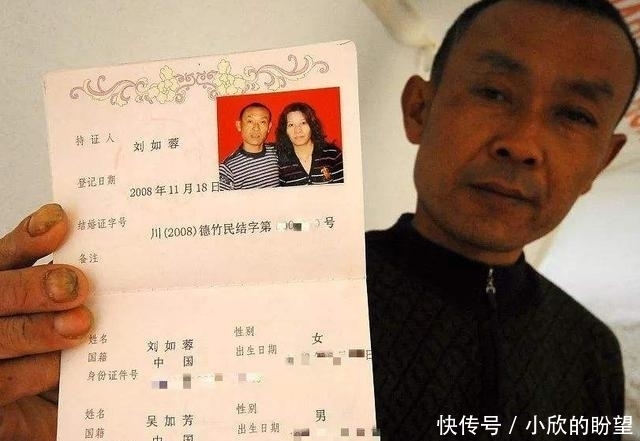 持证人 刘如蓉
登记日期 2008年11月18日
结婚证字号 川(2008)德竹民结字第 号
备注
姓名 刘如蓉 性别 女
国籍 中国 出生日期 日
身份证件号
姓名 吴加芳 性别 男
国籍 中国 出生日期
快传号 / 小欣的盼望